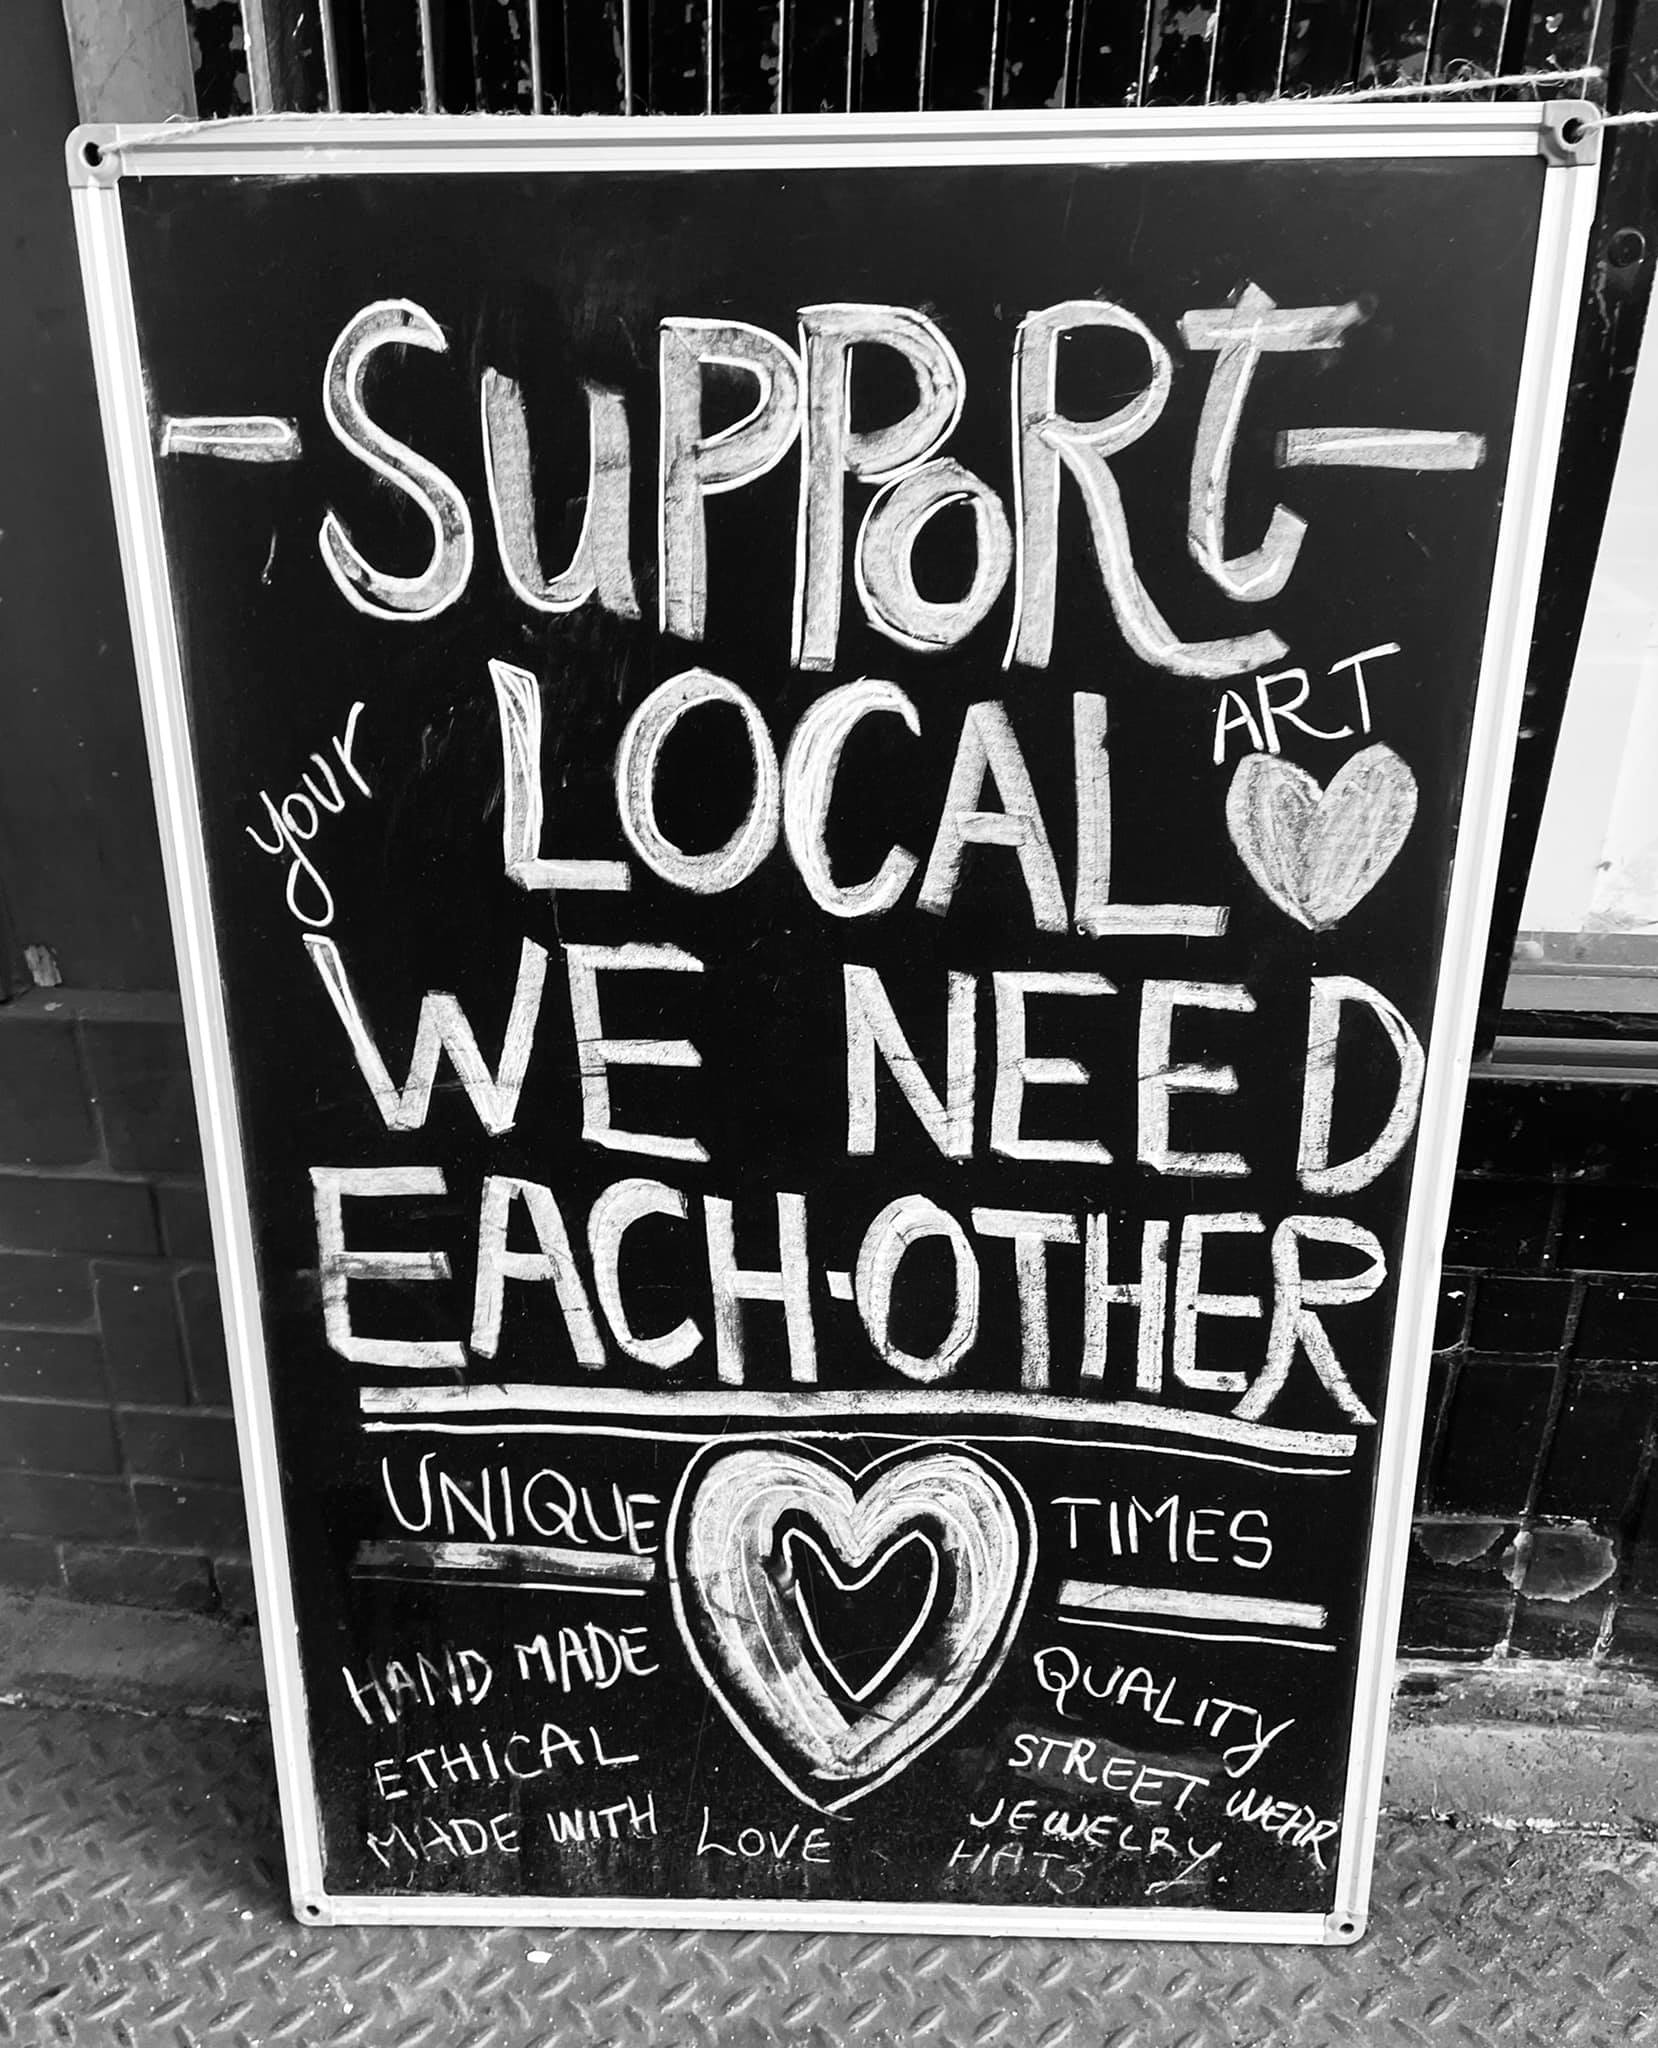 -SUPPORT-
your LOCAL ART
WE NEED
EACH-OTHER
UNIQUE TIMES
HAND MADE
ETHICAL
MADE WITH LOVE
QUALITY
STREET WEAR
JEWELRY
HATS